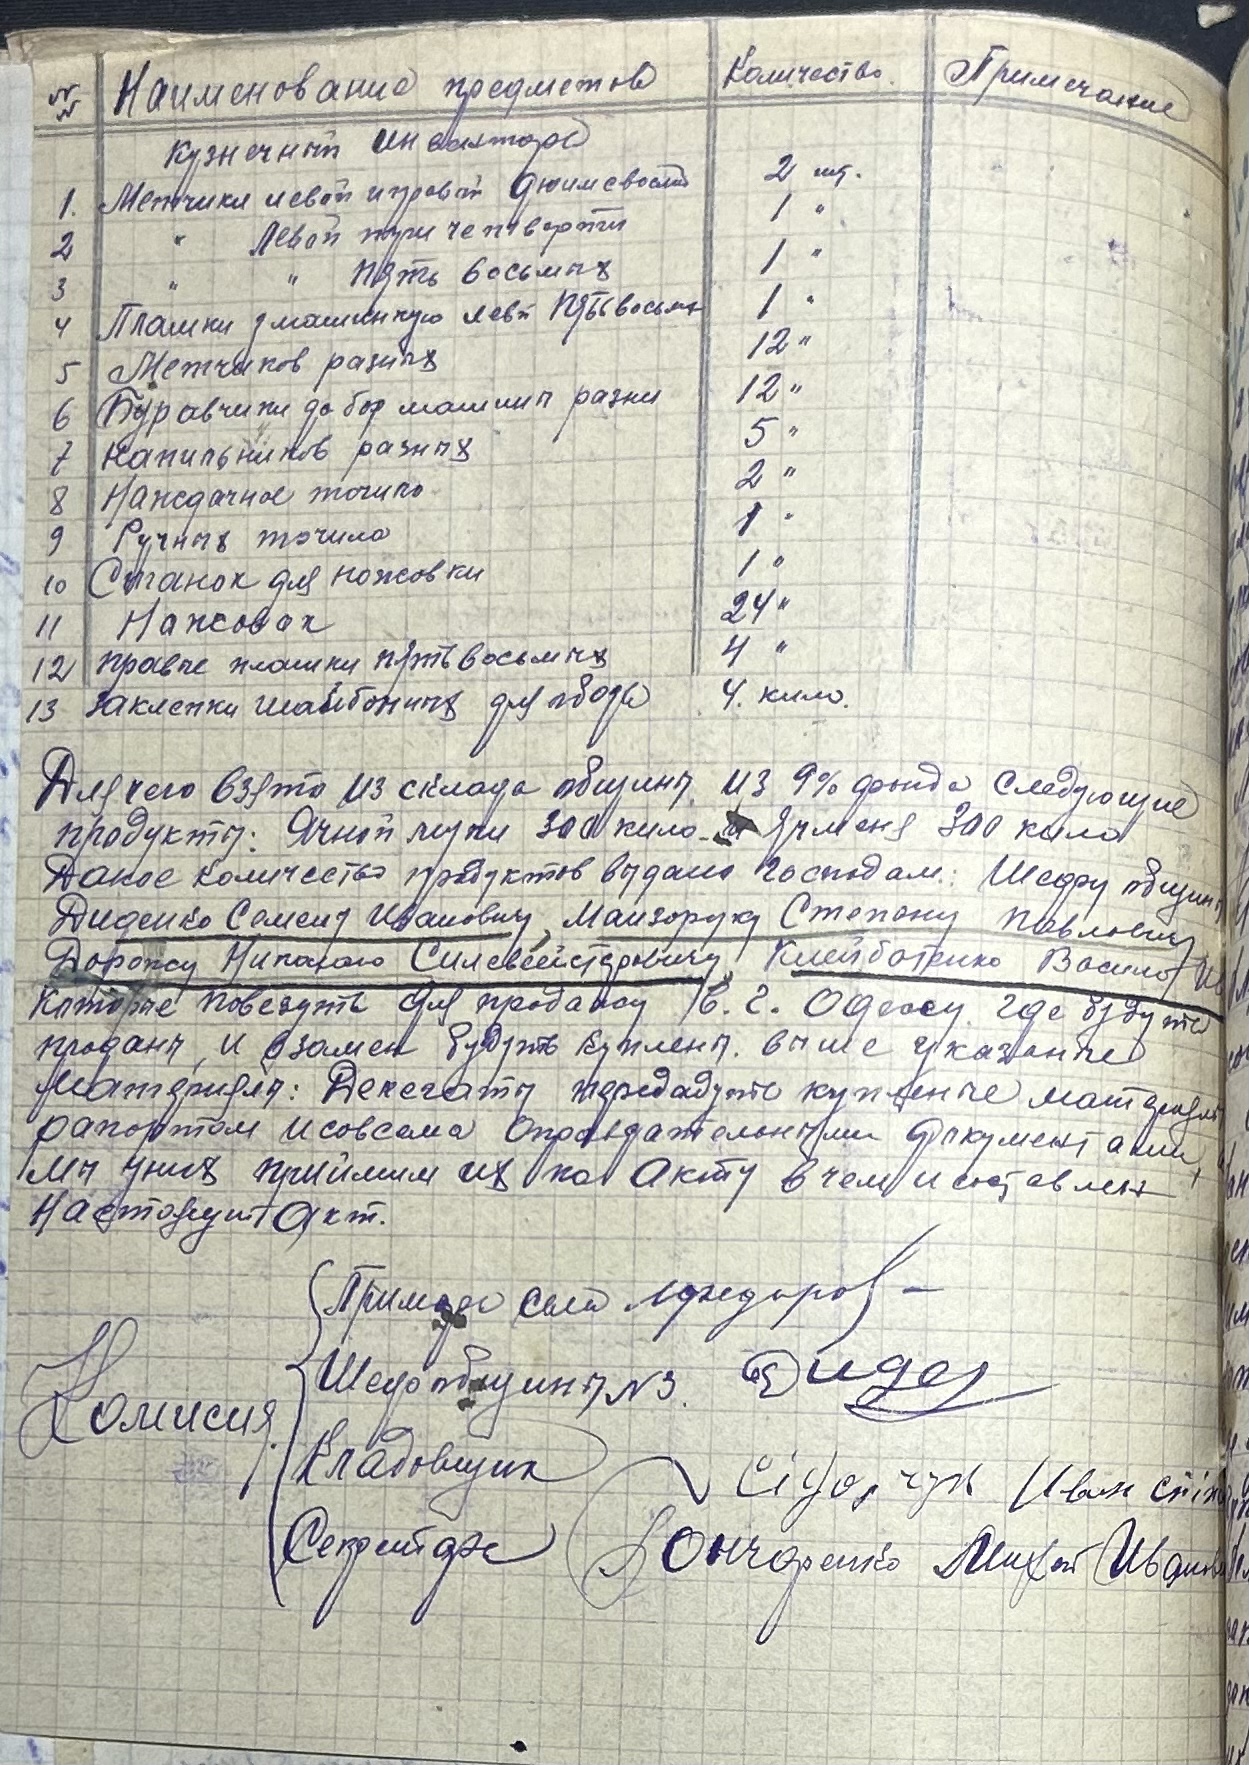 №№ Наименование предметов Количество. Примечание
Кузнечный инвентарь
1. Метчики левой и правый дюймевосми 2 шт.
2 " Левой три четверти 1 "
3 " " Пять восьмых 1 "
4 Плашки левй Пятьвосьм 1 "
5 Метчиков разных 12 "
6 Буравчики до бор машины разни 12 "
7 Напильников разных 5 "
8 Наждачное точило 2 "
9 Ручных точило 1 "
10 Станок для ножовки 1 "
11 Нажовак 24 "
12 правые плашки пятьвосьмых 4 "
13 Заклепки шайбоных для обода 4. кило.
Для чего взято из склада общины из 9% фонда следующие
продукты: Ячной муки 300 кило. и ячменя 300 кило
Даное количество продуктов выдано господам: Шефру общины
Диденко Семену Ивановичу, Манзоруку Степану Павловичу
Дорожу Николаю Силевейстровичу, Клейботенко Василю Ив
Которые повезуть для продажу в г. Одессу где будуть
проданы и взамен будуть куплены выше указаные
Материялы: Делегаты передадуть купленые материялы
рапортом и совсема оправдательными документами,
Мы уних приймим их по Акту в чем и составлен
Настоящий Акт.
Комисия
Примарь села
Шеф общины №3. Дидов
Кладовщик Сідорчук Иван
Секретарь Гончаренко Михай Иванов